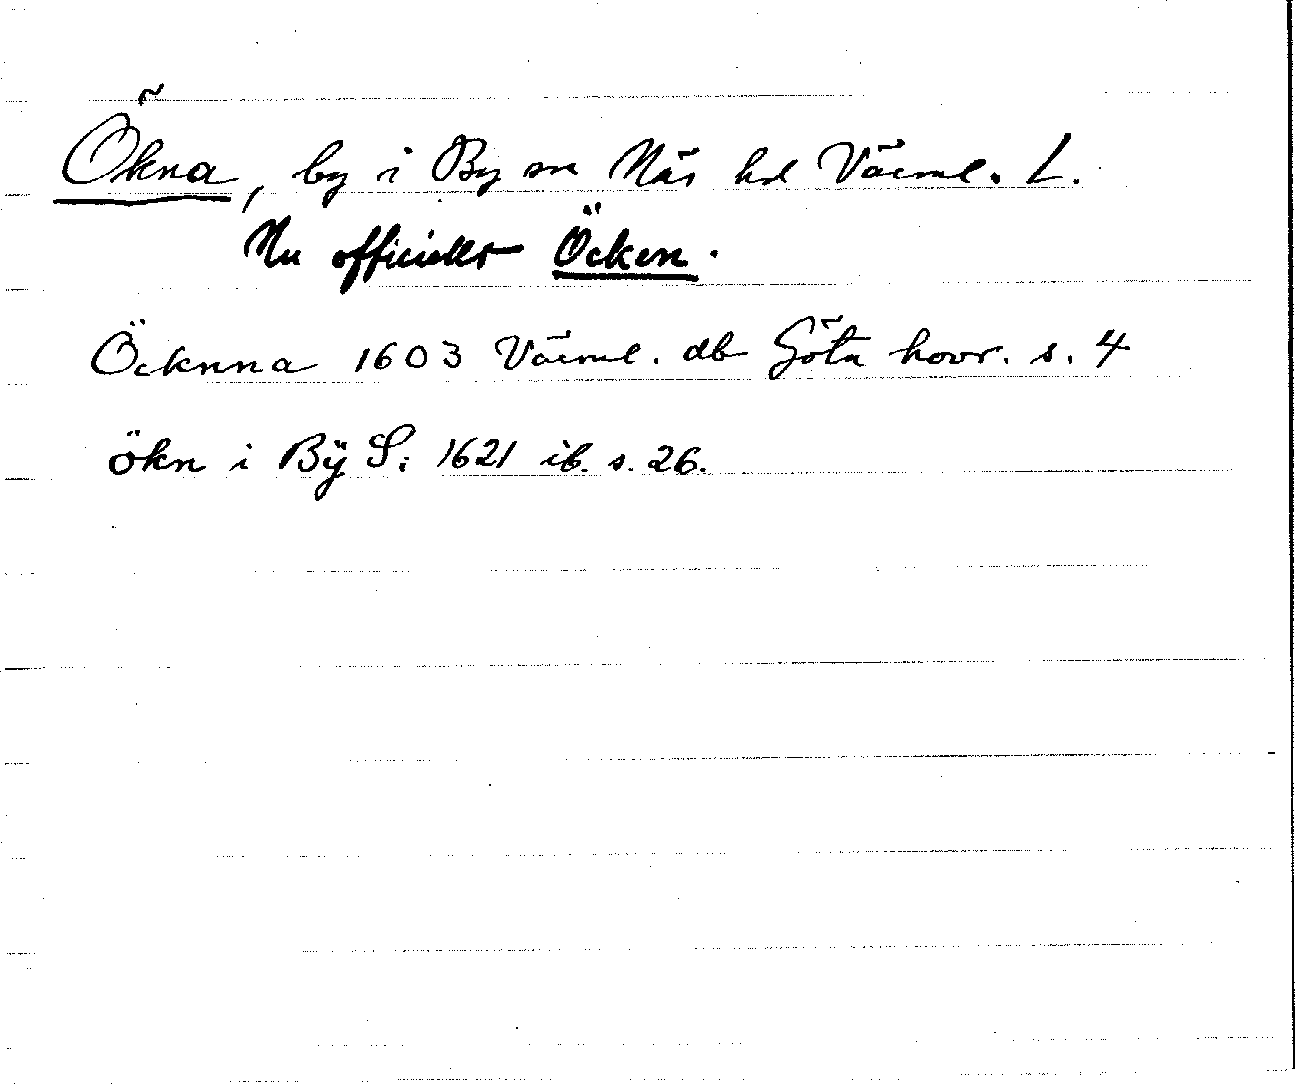 Ökna, by i By sn Näs hd Värml. L.
Nu officiellt Öcken.
Öcknna 1603 Värml. db Göta hovr. s. 4
ökn i Bÿ S: 1621 ib. s. 26.